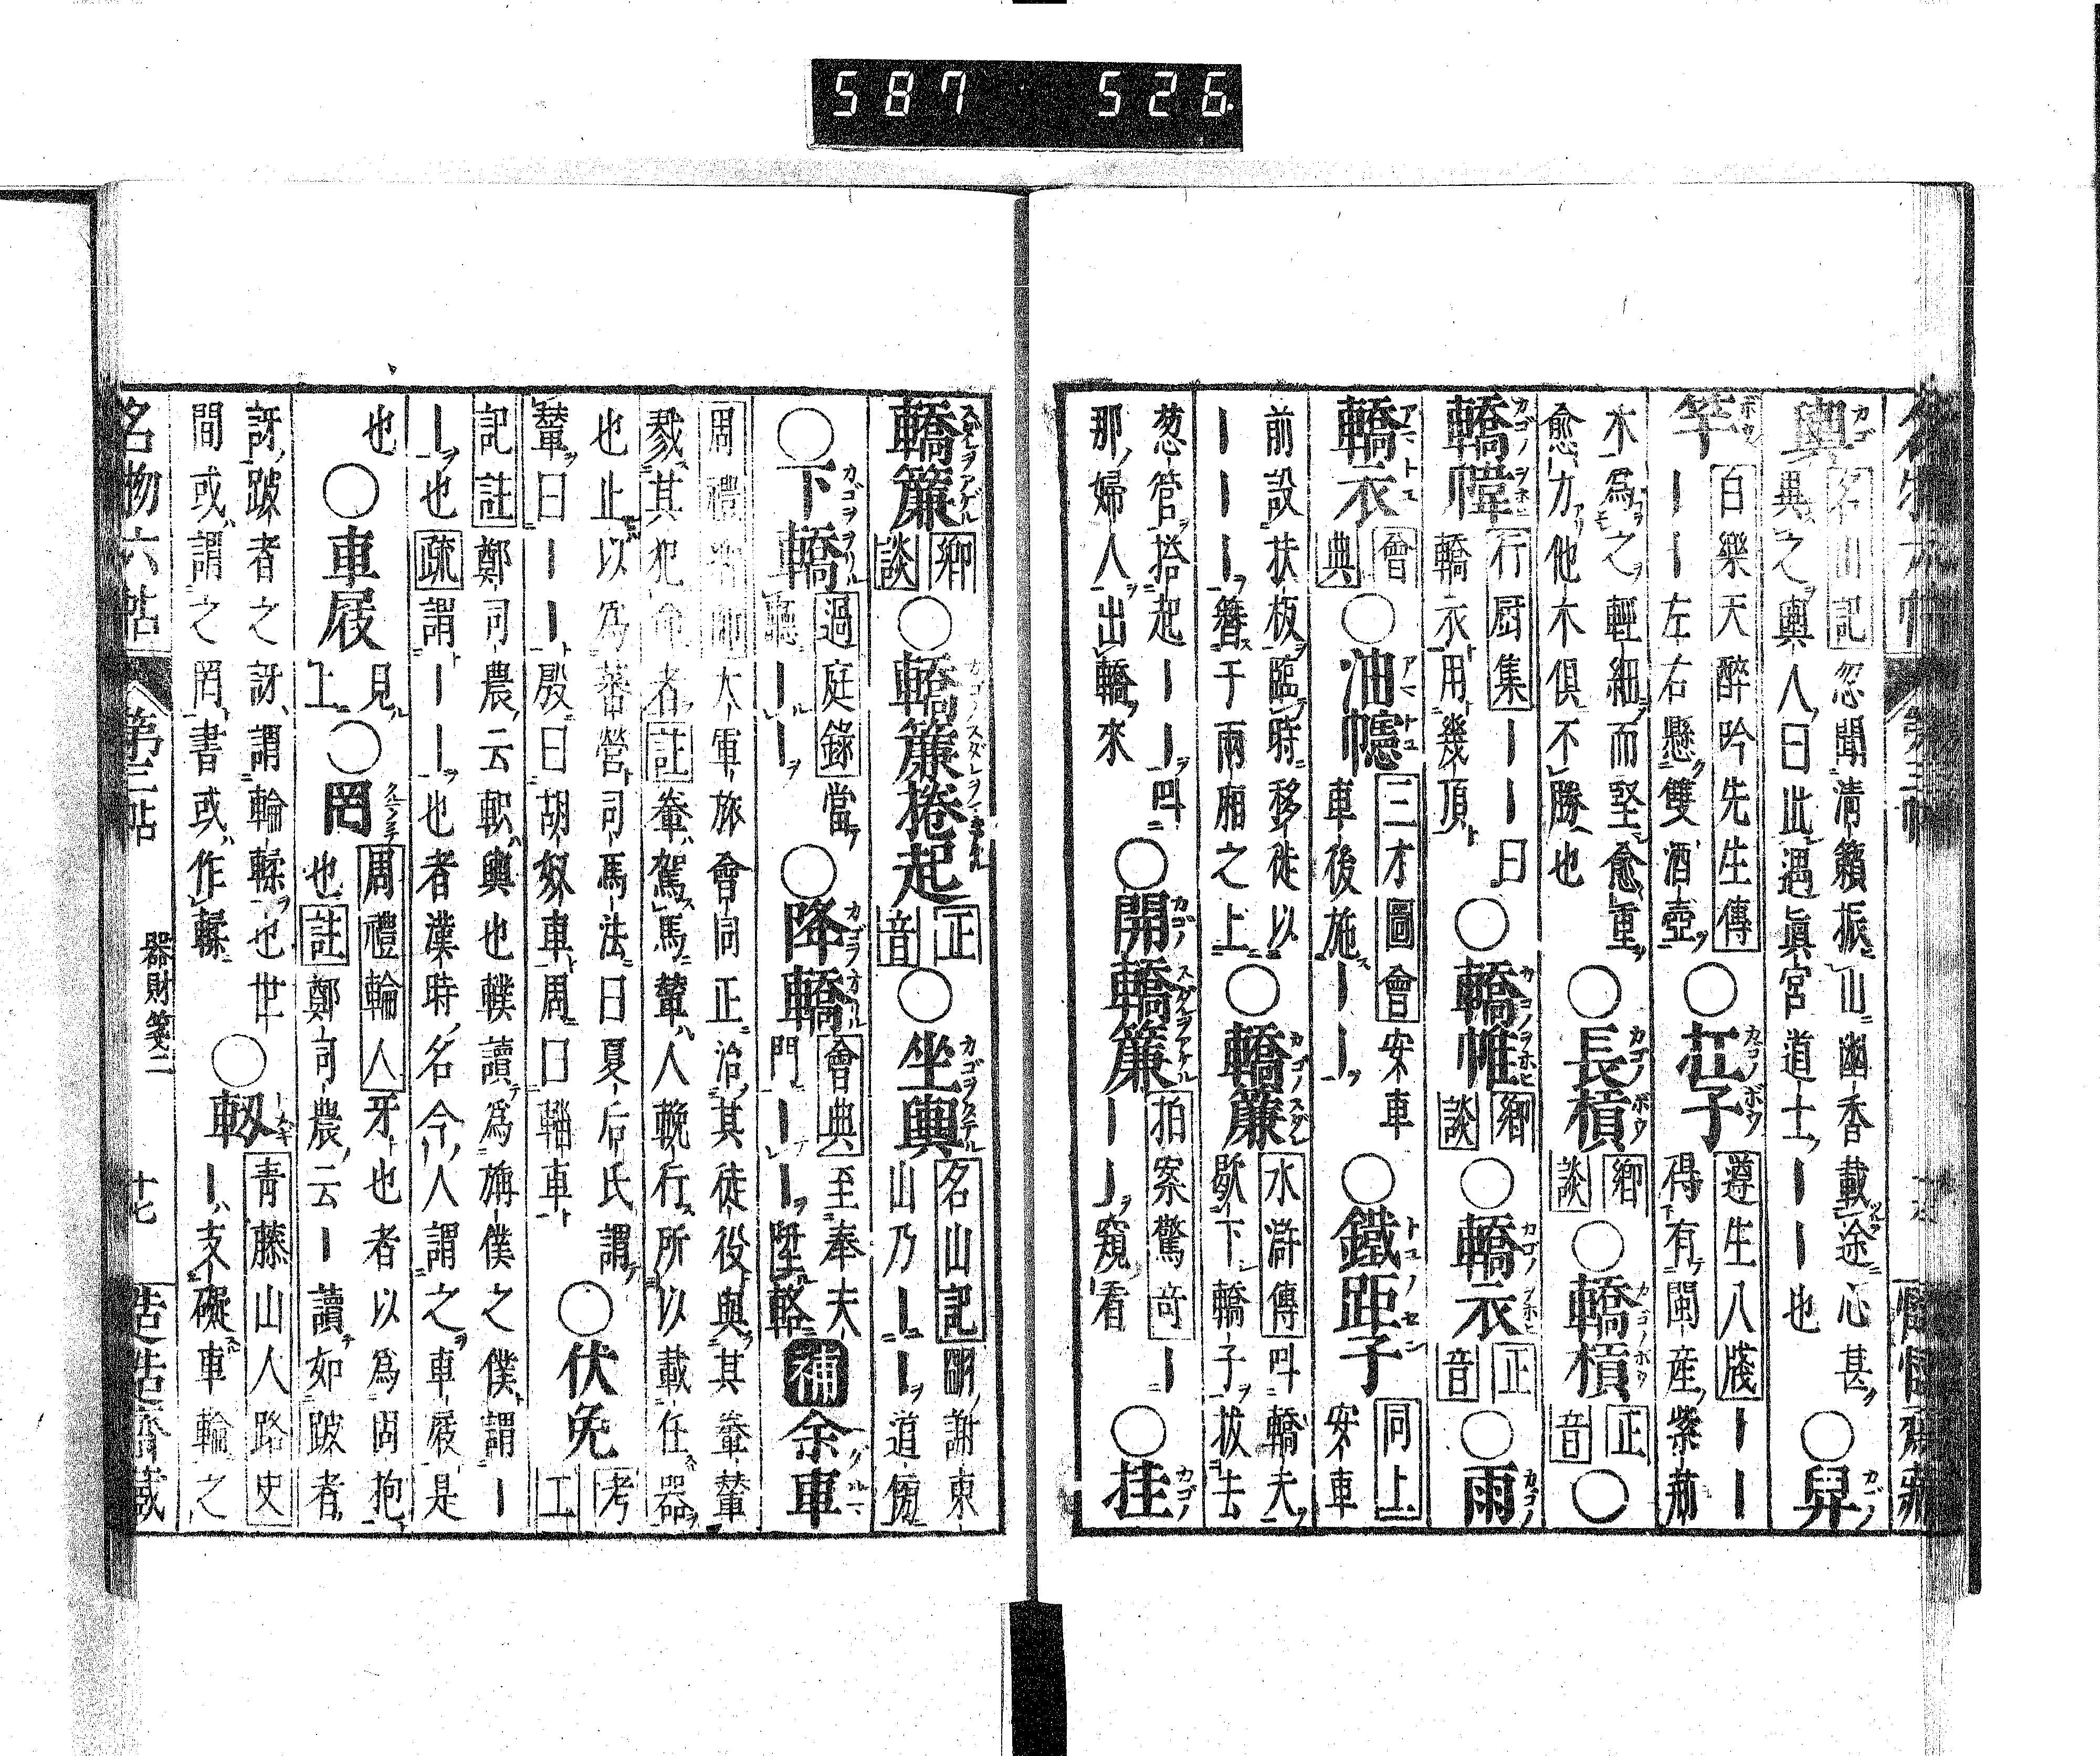 587 526
輿 名山記 忽聞清籟振山幽香載途心甚
異之輿人曰此遇眞宮道士ーー也 ○舁
竿 白樂天醉吟先生傳
ーー左右懸雙酒壺 ○杠子 遵生八牋 ーー
得有閩産紫荊
木爲之輕細而堅愈重
愈力他木俱不勝也 ○長槓 鄉談 ○轎槓 正音 ○
轎幃 行厨集 ーー曰
轎衣用幾頂 ○轎帷 鄉談 ○轎衣 正音 ○雨
轎衣 會典 ○油幰 三才圖會 安車
車後施ーー ○鐵距子 同上 安車
前設扶板臨時移徙以
ーーー簪于兩廂之上 ○轎簾 水滸傳 叫轎夫
歇下轎子拔去
葱管拾起ーー叫
那婦人出轎來 ○開轎簾 拍案驚奇 ー
ー」窺看 ○挂
轎簾 鄉談 ○轎簾捲起 正音 ○坐輿 名山記 嗣謝東
山乃ーー道傍
○下轎 過庭錄 當
聽ーー ○降轎 會典 至奉天
門ーー陞輅 補 余車
周禮 大軍旅會同正治其徒役與其輂輦
戮其犯命者 註 輂駕馬輦人輓行所以載任器
也止以爲蕃營司馬法曰夏后氏謂
輦曰ーー殷曰胡奴車周曰輜車 ○伏兔 考工
記註 鄭司農云軾輿也轐讀爲旆僕之僕謂ー
ー也 疏 謂ーー也者漢時名今人謂之車屐是
也 ○車屐 見上 ○罔 周禮輪人 牙也者以爲固抱
也 註 鄭司農云ー讀如跛者
訝跛者之訝謂輪輮也世
間或謂之罔書或作輮 ○軔 青藤山人路史
ー支礙車輪之
名物六帖 第三帖 器財箋二 十七